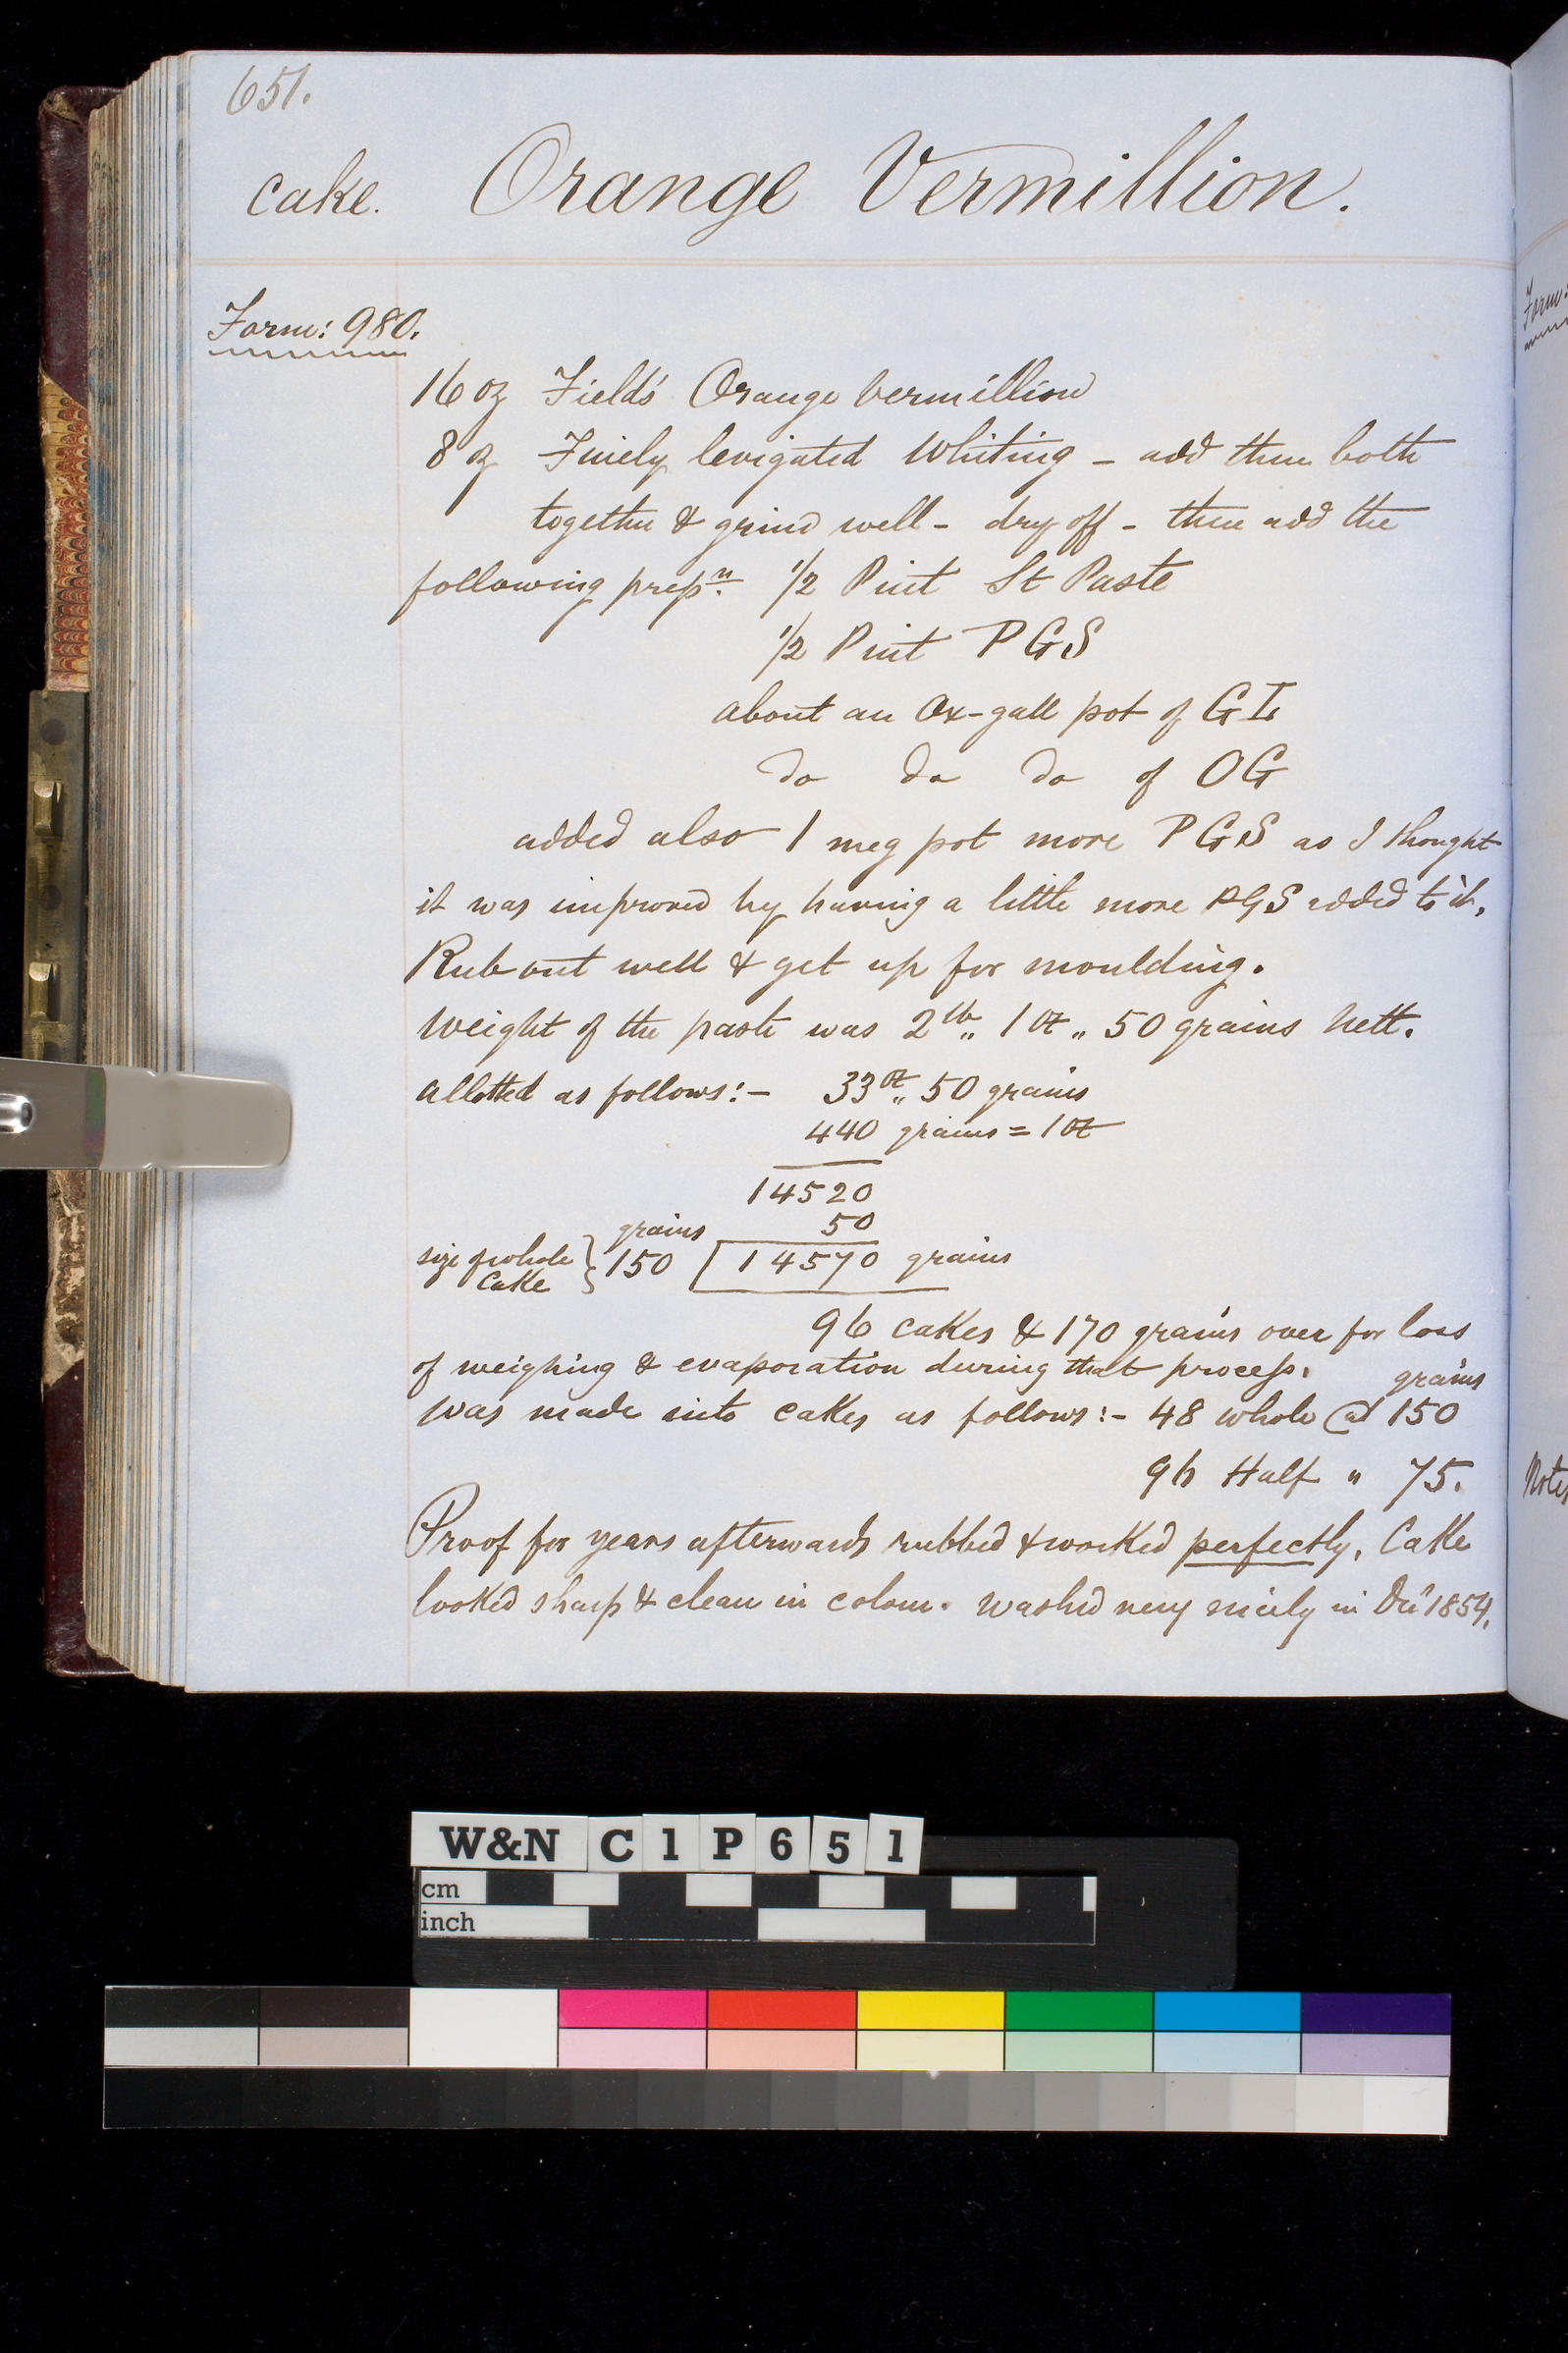 651.
cake. Orange Vermillion.
Form: 980.
16 oz Field's Orange Vermillion
8 oz Finely levigated Whiting - add them both
together & grind well - dry off - then add the
following prepn. 1/2 Pint St Paste
1/2 Pint PGS
about an Ox-gall pot of GI
do do do of OG
added also 1 meg pot more PGS as I thought
it was improved by having a little more PGS added to it.
Rub out well & get up for moulding.
Weight of the paste was 2 lb„ 1 oz „ 50 grains nett.
allotted as follows:- 33 oz„ 50 grains
440 grains = 1 oz
14520
50
grains
size of whole cake } 150 14570 grains
96 cakes & 170 grains over for loss
of weighing & evaporation during that process.
grains
Was made into cakes as follows:- 48 whole @ 150
96 Half " 75.
Proof for years afterwards rubbed & worked perfectly. Cake
looked sharp & clean in colour. Washed very nicely in Decr 1854.
Form:
Notes
W&N C1P651
cm
inch